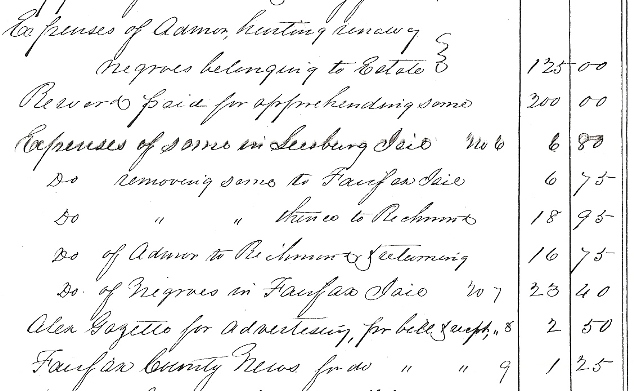 Expenses of Admor, hunting runaway
negroes belonging to Estate } 125 00
Reward paid for apprehending same 200 00
Expenses of same in Leesburg Jail No 6 6 80
Do removing same to Fairfax Jail 6 75
Do " " thence to Richmond 18 95
Do of Admor to Richmond & returning 16 75
Do of Negroes in Fairfax Jail No 7 23 40
Alex Gazette for advertising, pr bill & recpt, " 8 2 50
Fairfax County News for do " " 9 1 25